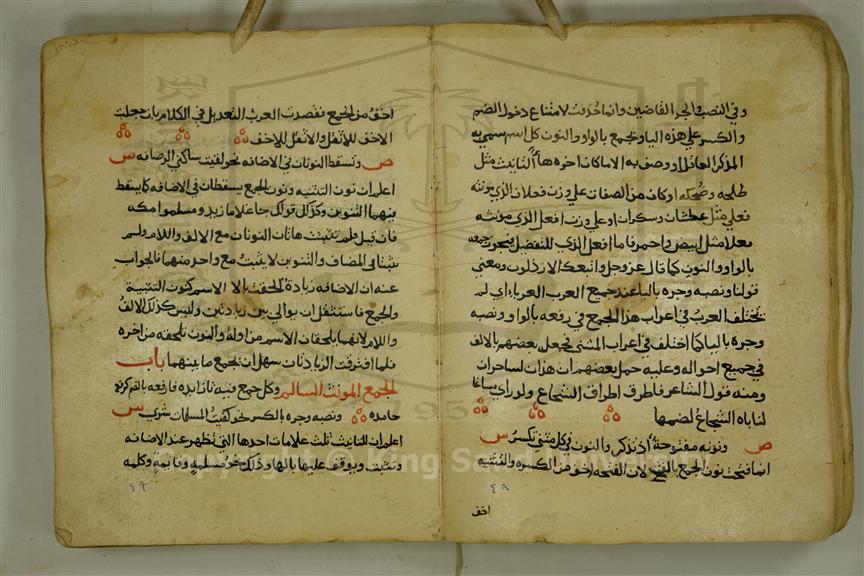 وفي النصب والجر القاضين وانما حذفت لامتناع دخول الضم
والكسر علي هذه الياء ويجمع بالواو والنون كل اسم سمي به
المذكر العاقل او وصف به الا ماكان اخره هاء التانيث مثل
طلحه وضحكه او كان من الصفات علي وزن فعلان الذي مونثه
فعلي مثل عطشان وسكران او علي وزن افعل الذي مونثه
فعلا مثل ابيض واحمر فاما افعل الذي للتفضيل فيجوز جمعه
بالواو والنون كما قال عز وجل واتبعك الارذلون ومعني
قولنا ونصبه وجره بالياء عند جميع العرب العرباء اي لم
تختلف العرب في اعراب هذا الجمع في رفعه بالواو ونصبه
وجره بالياء كما اختلف في اعراب المثني فجعل بعضهم بالالف
في جميع احواله وعليه حمل بعضهم ان هذان لساحران
ومنه قول الشاعر فاطرق اطراق الشجاع ولو راي مساغا
لناباه الشجاع لصمما
ص ونونه مفتوحة اذ تذكر والنون في كل مثني تكسر س
انما فتحت نون الجمع لان الفتحه اخف من الكسره والتثنيه
اخف
٤٨
اخف من الجمع فقصدت العرب التعديل في الكلام بان جعلت
الاخف للاثقل والاثقل للاخف
ص وتسقط النونان في الاضافه نحو لقيت ساكني الرصافه س
اعلم ان نون التثنيه ونون الجمع يسقطان في الاضافه كما يسقط
فيهما التنوين وكذلك قولك جا غلاما زيد ومسلموا مكه
فان قيل فلم تثبت هاتان النونان مع الالف واللام ولم
تثبتا في المضاف والتنوين لا يثبت مع واحد منهما فالجواب
عنه ان الاضافه زيادة الحقت بالاسم كنون التثنية
والجمع فاستثقل ان يوالي بين زيادتين وليس كذلك الالف
واللام لانهما يلحقان الاسم من اوله والنون تلحقه من اخره
فلما افترقت الزيادتان سهل ان تجمع ما بينهما باب
الجمع المونث السالم وكل جمع فيه تا زايده فارفعه بالضم كرفع
حامده ونصبه وجره بالكسر نحو كفيت المسلمات شري س
اعلم ان للتانيث ثلث علامات احدها التي تظهر عند الاضافه
وتثبت ويوقف عليها بالها وذلك نحو مسلمه وقايمه وكلمه
٤٧
Copyright © King Saud University
1957